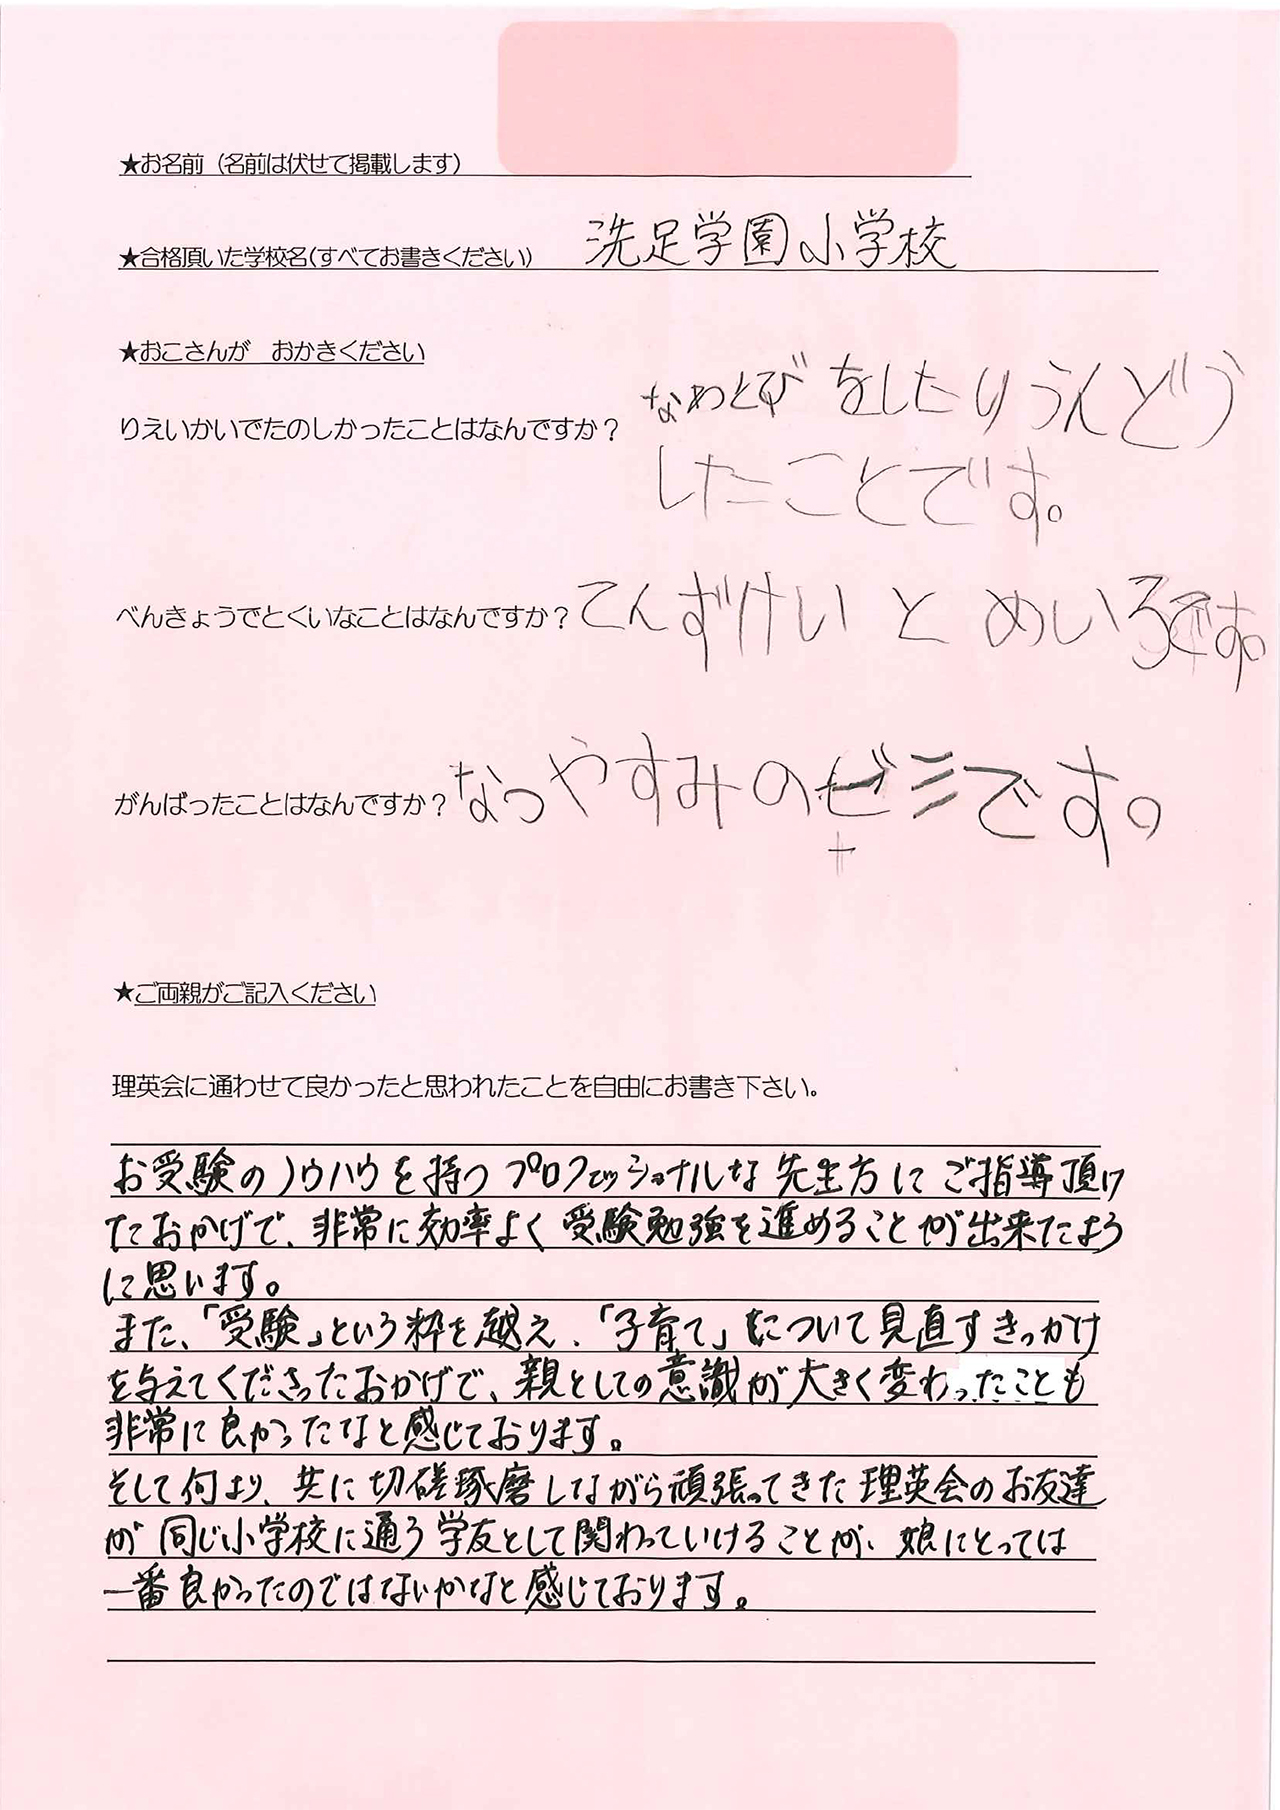 ★お名前（名前は伏せて掲載します）
★合格頂いた学校名(すべてお書きください) 洗足学園小学校
★おこさんが　おかきください
りえいかいでたのしかったことはなんですか？ なわとびをしたりうんどう
したことです。
べんきょうでとくいなことはなんですか？ てんずけいと めいろです。
がんばったことはなんですか？ なつやすみのゼミです。
★ご両親がご記入ください
理英会に通わせて良かったと思われたことを自由にお書き下さい。
お受験のノウハウを持つプロフェッショナルな先生方にご指導頂け
たおかげで、非常に効率よく受験勉強を進めることが出来たよう
に思います。
また、「受験」という枠を越え、「子育て」について見直すきっかけ
を与えてくださったおかげで、親としての意識が大きく変わったことも
非常に良かったなと感じております。
そして何より、共に切磋琢磨しながら頑張ってきた理英会のお友達
が同じ小学校に通う学友として関わっていけることが、娘にとっては
一番良かったのではないかなと感じております。